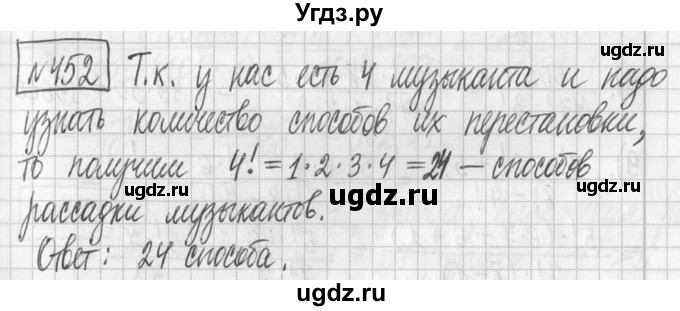 Угдз.ру
№452 Т.к. у нас есть 4 музыканта и надо
узнать количество способов их перестановки,
то получим 4! = 1·2·3·4 = 24 – способов
рассадки музыкантов.
Ответ: 24 способа.
ugdz.ru
ugdz.ru
ugdz.ru
ugdz.ru
ugdz.ru
ugdz.ru